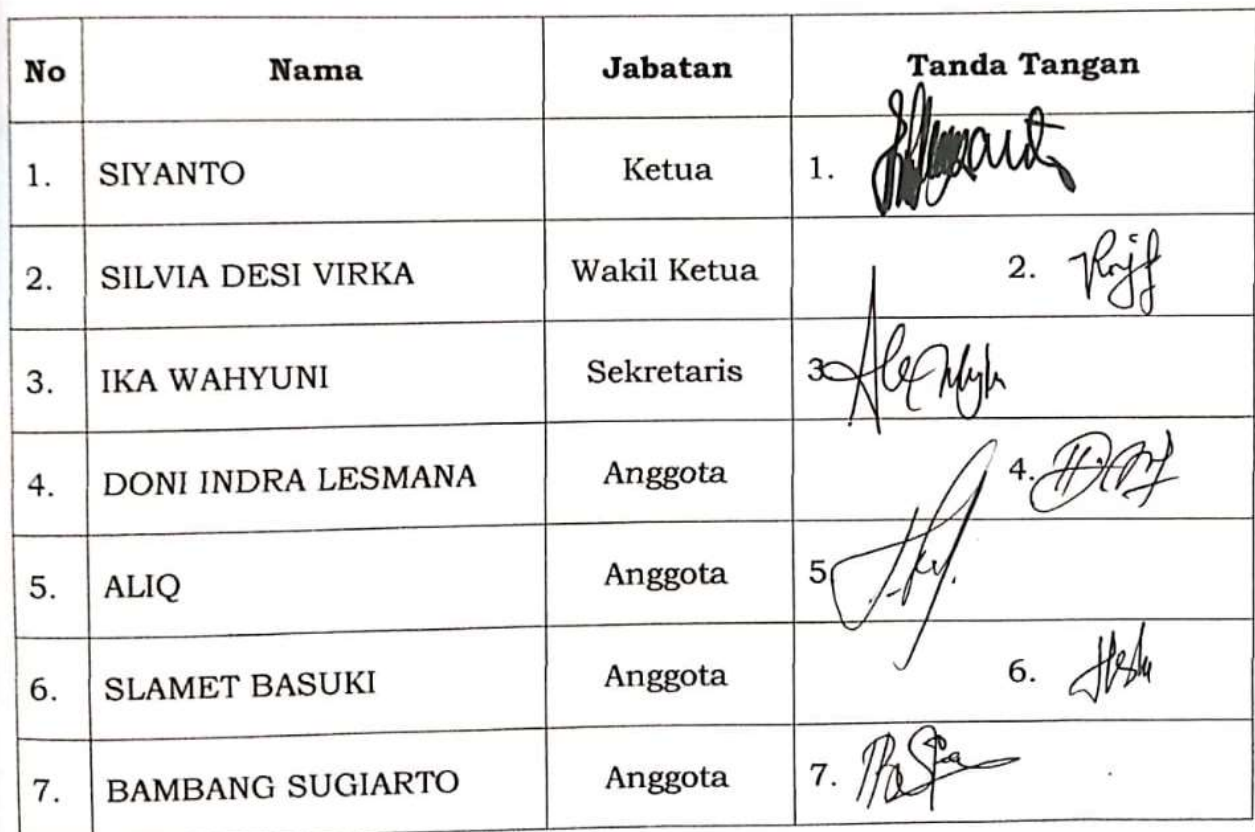 No Nama Jabatan Tanda Tangan
1. SIYANTO Ketua 1.
2. SILVIA DESI VIRKA Wakil Ketua 2.
3. IKA WAHYUNI Sekretaris 3
4. DONI INDRA LESMANA Anggota 4.
5. ALIQ Anggota 5
6. SLAMET BASUKI Anggota 6.
7. BAMBANG SUGIARTO Anggota 7.